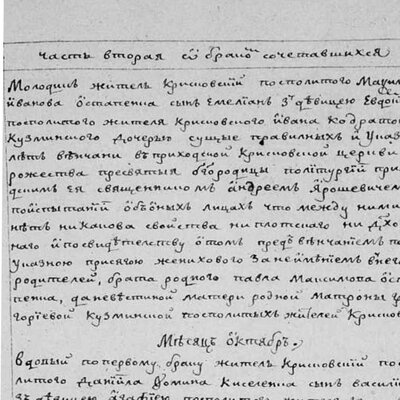 часть вторая ѿ брако сочетавшихся
Молодикъ житель Крисковскїй посполитого Макси
Їванова Остапенка сынъ Емелїанъ з дѣвицею Евдо
посполитого жителя Крисковского Ивана Кодрато
Кузминского Дочерью сущые правилныхъ и Указ
лѣтъ вѣнчани въ приходской Крисковской церкви
рожества пресвятыя бгородицы по литургїи при
ея священникомъ Андреемъ Ярошевичемъ
по испытанїи обоюныхъ лицахъ что между ними
нѣтъ никакова свойства ни плотскаго ни дхо
наго и по свидѣтелству о томъ предъ вѣнчанїемъ
Указною присягою женихового за неимѣнїемъ
родителей, брата родного павла Максимова ост
пенка, а невѣстиной матери родной Матроны гр
горїевой Кузминской посполитыхъ жителей Крисков
Мѣсяцъ Октябръ.
вдовый по первому браку житель Крисковскїй пос
политого Данїила Фомина Киселенка сынъ василїй
зъ дѣвицею Агафїею посполитого жителя